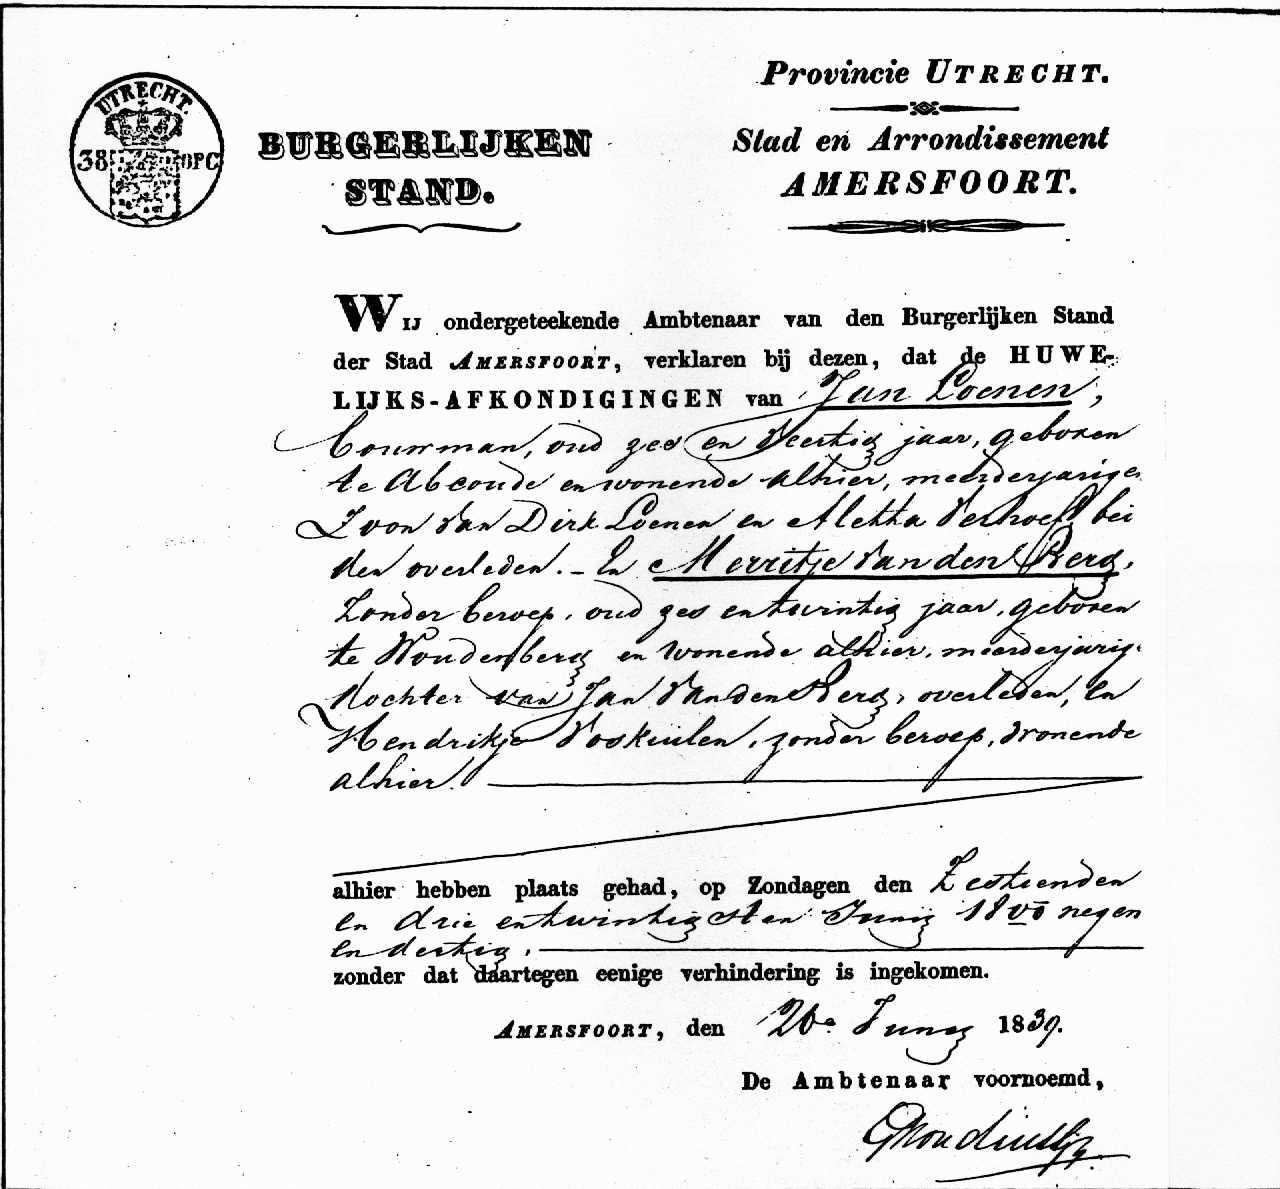 UTRECHT.
38
OPC
BURGERLIJKEN
STAND.
Provincie UTRECHT.
Stad en Arrondissement
AMERSFOORT.
WIJ ondergeteekende Ambtenaar van den Burgerlijken Stand
der Stad AMERSFOORT, verklaren bij dezen, dat de HUWE-
LIJKS-AFKONDIGINGEN van Jan Loenen,
bouwman, oud zes en veertig jaar, geboren
te Abcoude en wonende alhier, meerderjarige
Zoon van Dirk Loenen en Aletta Verhoef bei
den overleden. – En Merritje van den Berg,
Zonder beroep, oud zes en twintig jaar, geboren
te Woudenberg en wonende alhier, meerderjarig.
dochter van Jan van den Berg, overleden, en
Hendrikje Voskuilen, zonder beroep, wonende
alhier.
alhier hebben plaats gehad, op Zondagen den Zestienden
en drie en twintigsten Junij 18 negen
en dertig.
zonder dat daartegen eenige verhindering is ingekomen.
AMERSFOORT, den 26e Junij 1839.
De Ambtenaar voornoemd,